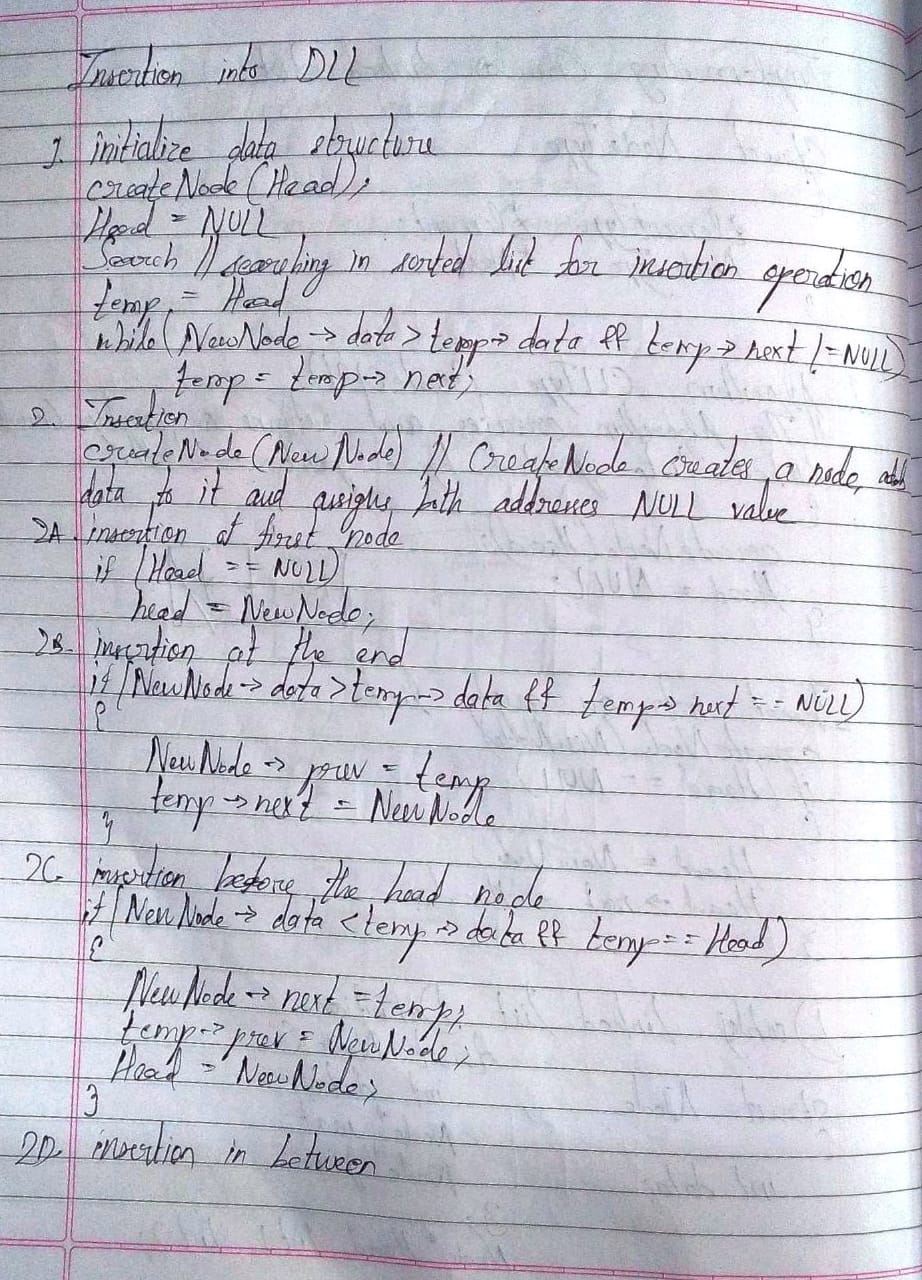 Insertion into DLL
1. initialize data structure
createNode (Head);
Head = NULL
Search // searching in sorted list for insertion operation
temp = Head
while (NewNode -> data > temp -> data && temp -> next != NULL)
temp = temp -> next;
2. Insertion
createNode (New Node) // CreateNode creates a node, adds
data to it and assighs both addresses NULL value
2A. insertion at first node
if (Head == NULL)
head = NewNode;
2B. insertion at the end
if (NewNode -> data > temp -> data && temp -> next == NULL)
{
NewNode -> prev = temp
temp -> next = NewNode
}
2C. insertion before the head node
if (NewNode -> data < temp -> data && temp == Head)
{
NewNode -> next = temp;
temp -> prev = NewNode;
Head = NewNode;
}
2D. insertion in between